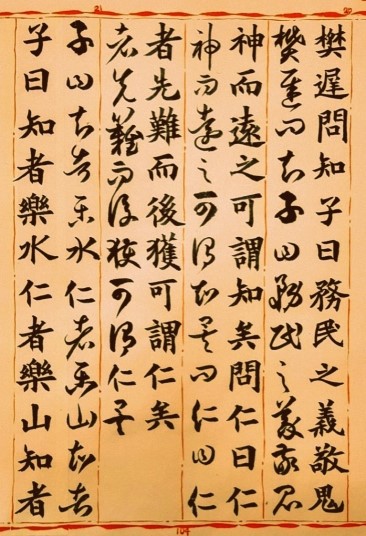 21
20
樊遲問知子曰務民之義敬鬼
樊遲問知子曰務民之義敬鬼
神而遠之可謂知矣問仁曰仁
神而遠之可謂知矣問仁曰仁
者先難而後獲可謂仁矣
者先難而後獲可謂仁矣
子曰知者樂水仁者樂山知者
子曰知者樂水仁者樂山知者
104